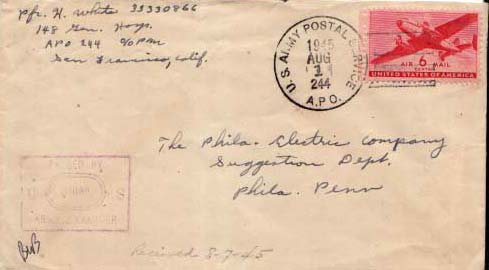 Pfc. H. White 33330866
148 Gen. Hosp.
APO 244 c/o PM
San Francisco, Calif.
U.S. ARMY POSTAL SERVICE
1945
AUG
1
244
A.P.O.
6
CENTS
AIR MAIL
UNITED STATES OF AMERICA
The Phila. Electric Company
Suggestion Dept.
Phila. Penn
PASSED BY
U S
ARMY EXAMINER
Received 8-7-45